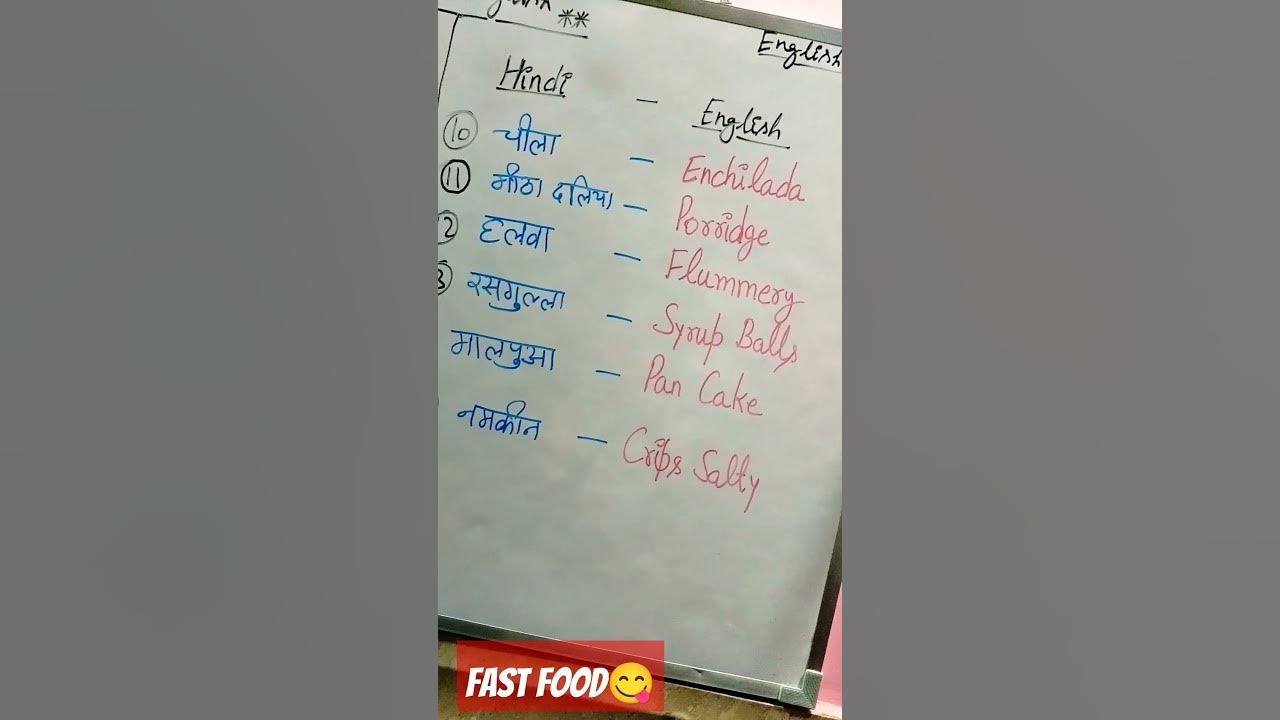 **
English
Hindi - English
10 चीला - Enchilada
11 मीठा दलिया - Porridge
2 हलवा - Flummery
3 रसगुल्ला - Syrup Balls
मालपुआ - Pan Cake
नमकीन - Crips Salty
FAST FOOD😋